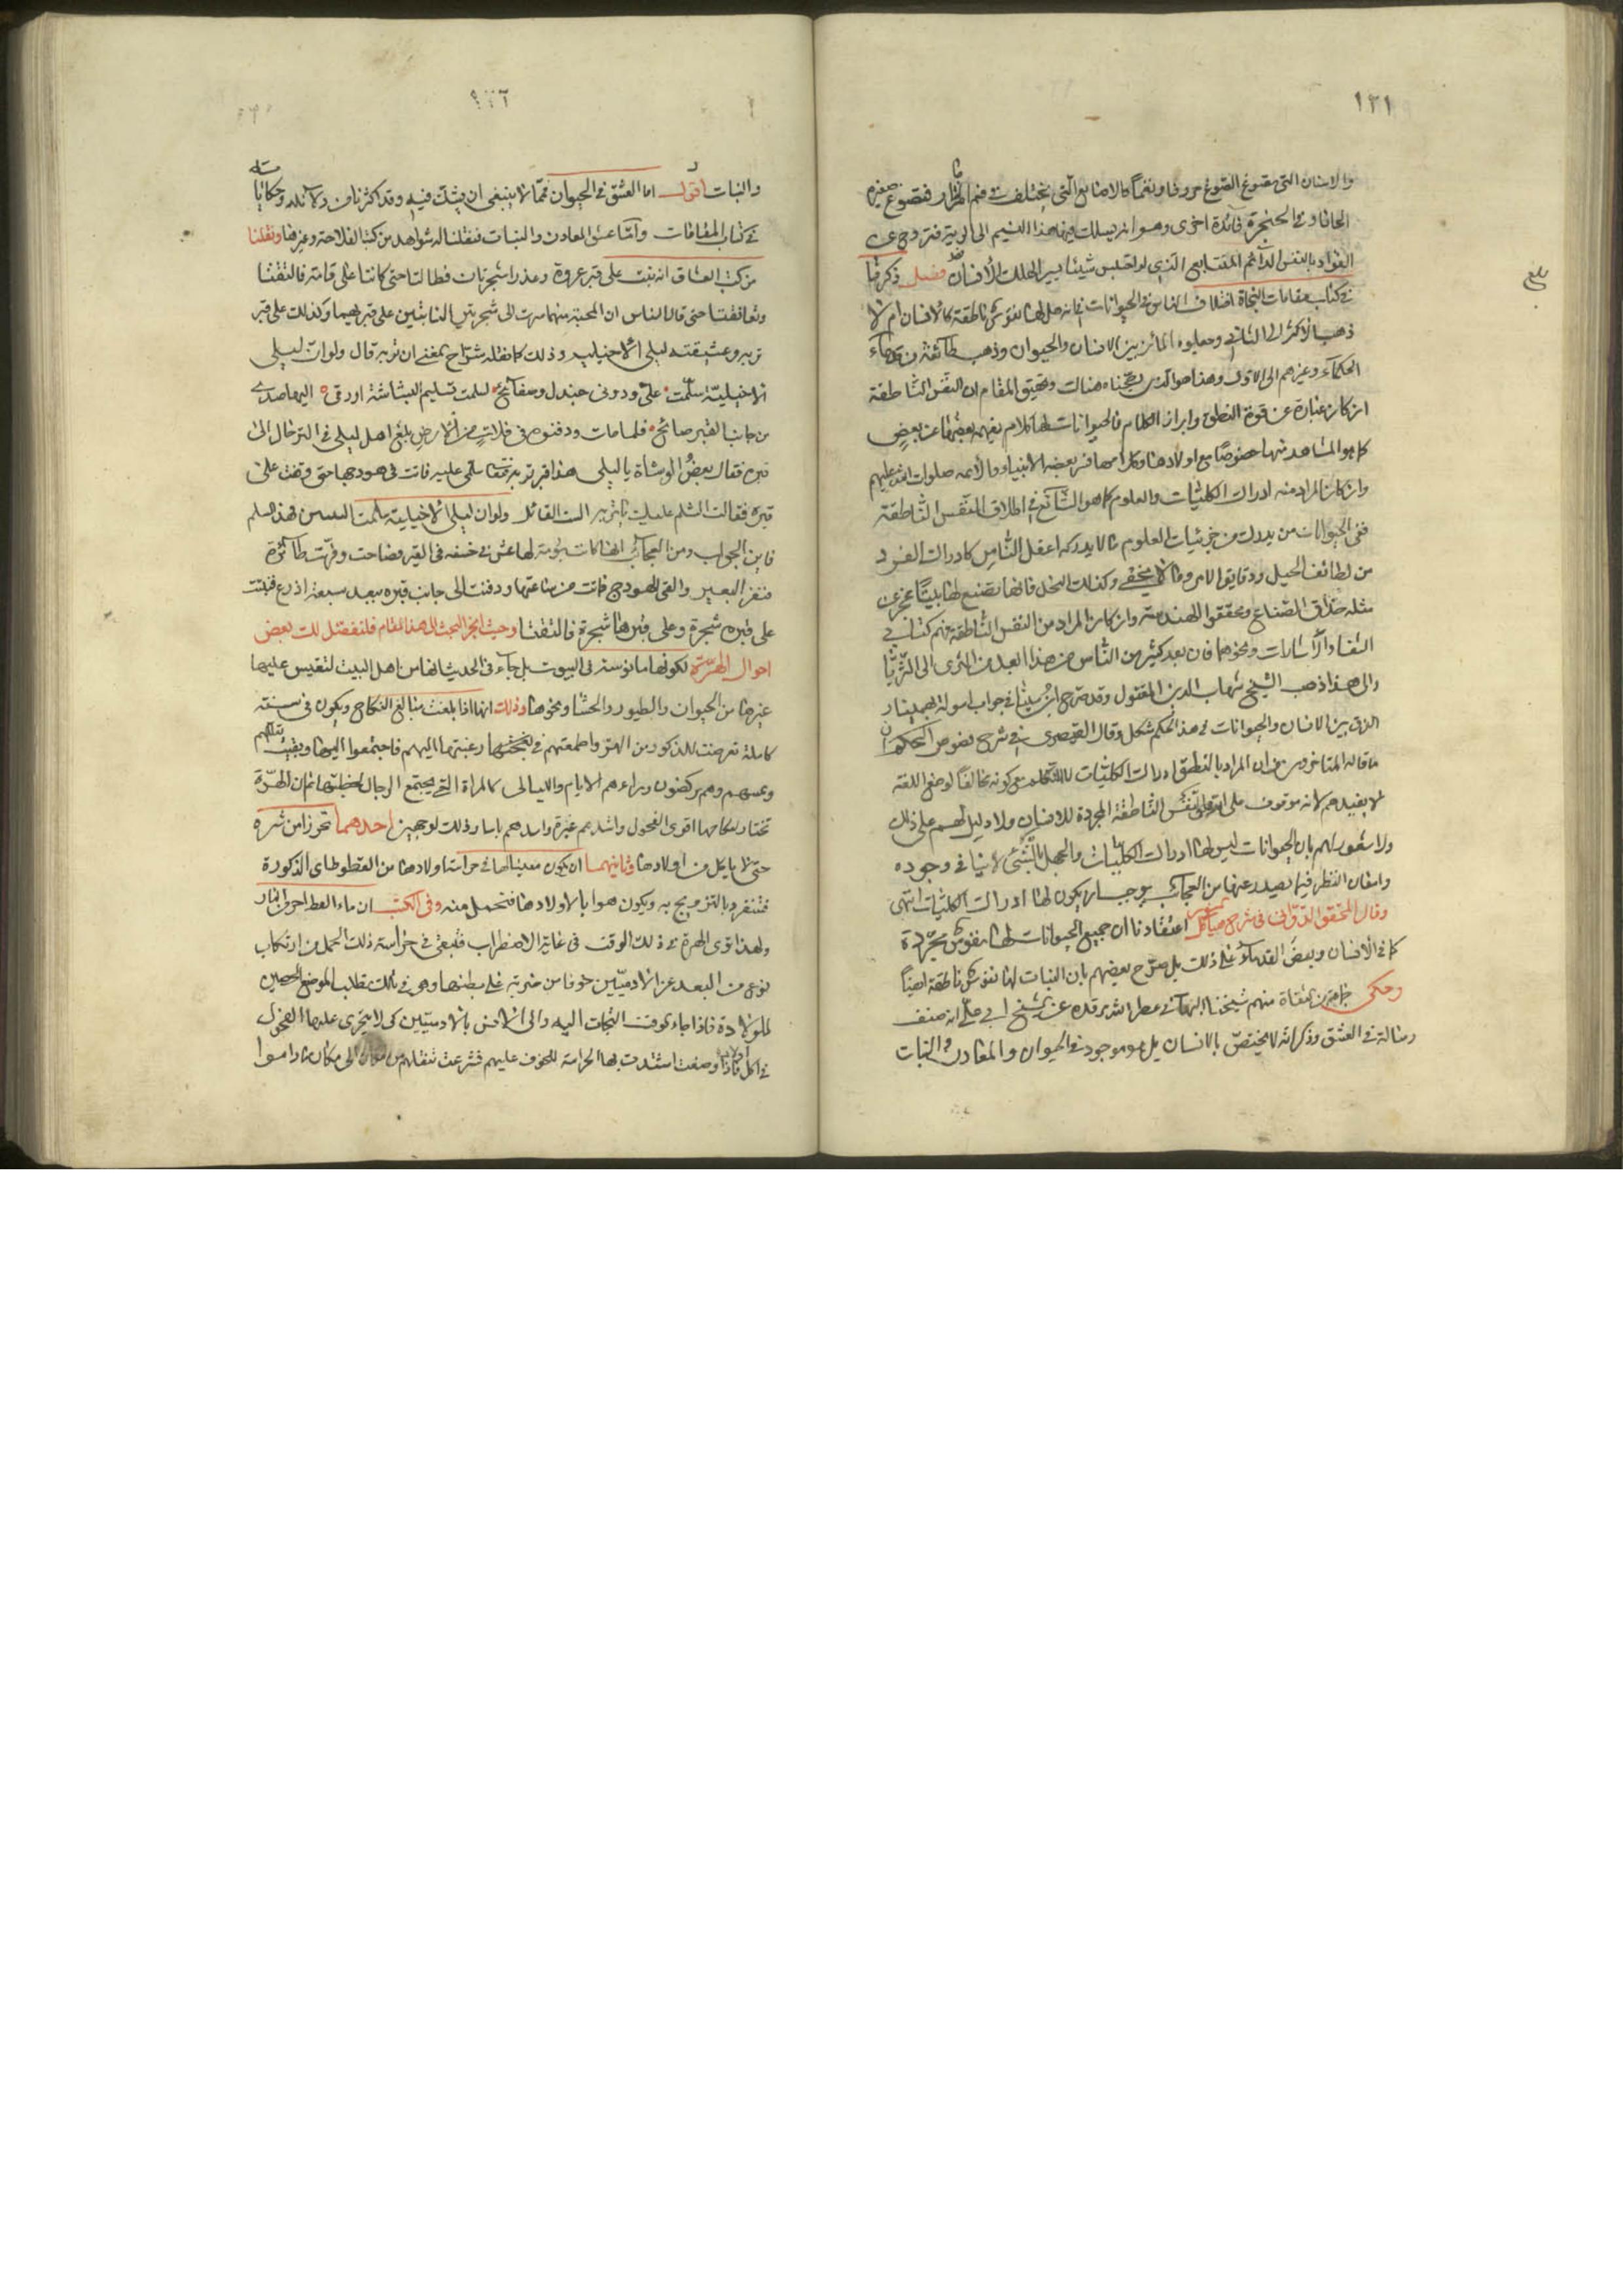 ١٣١
والاسنان التى تصوغ الصوغ حروفا ونغما كالاصابع التى تختلف فى فم المزمار فتصوغ صفيره
الحانا وفى الحنجرة فائدة اخرى وهو انه يسلك فيها هذا النسيم الى الرية فتروح على
الفواد بالنفس الدائم المتتابع الذى لو احتبس شيئا يسيرا لهلك الانسان فصل ذكرنا
فى كتاب مقامات النجاة اختلاف الناس فى الحيوانات فى انه هل لها نفوس ناطقة كالانسان ام لا
ذهب الاكثر الى الثانى وجعلوه المائز بين الانسان والحيوان وذهب طائفة من قدماء
الحكماء وغيرهم الى الاول وهذا هو الذى رجحناه هناك وتحقيق المقام ان النفس الناطقة
ان كان عبارة عن قوة النطق وابراز الكلام فالحيوانات لها كلام يفهمه بعضها عن بعض
كما هو المشاهد منها خصوصا مع اولادها وكلامها فسر بعضه الانبياء والائمه صلوات الله عليهم
وان كان المراد منه ادراك الكليات والعلوم كما هو الشائع فى اطلاق النفس الناطقة
ففى الحيوانات من يدرك من جزئيات العلوم ما لا يدركه اعقل الناس كادراك القرد
من لطائف الحيل ودقايق الامور ما لا يخفى وكذلك النحل فانها تصنع لها بيتا يعجز عن
مثله حذاق الصناع ومحققوا الهندسة وان كان المراد من النفس الناطقة فهم كتابى
الشفاء والاشارات ونحوهما فان بعد كثير من الناس من هذا ابعد من الثرى الى الثريا
والى هذا ذهب الشيخ شهاب الدين المقتول وقد صرح ابن سينا فى جواب اسولة بهمنيار
الفرق بين الانسان والحيوانات فى هذا الحكم مشكل وقال القيصرى فى شرح فصوص الحكم ان
ما قاله المتاخرون من ان المراد بالنطق ادراك الكليات لا التكلم مع كونه مخالفا لوضع اللغة
لا يفيدهم لانه موقوف على ان النفس الناطقة المجردة للانسان ولا دليل لهم على ذلك
ولا شعور لهم بان الحيوانات ليس لها ادراك الكليات والجهل بالشئ لا ينافى وجوده
وامعان النظر فيما يصدر عنها من العجائب يوجب ان يكون لها ادراك الكليات انتهى
وقال المحقق الدوانى فى شرح هياكل اعتقادنا ان جميع الحيوانات لها نفوس مجردة
كما فى الانسان وبعض القدماء على ذلك بل صرح بعضهم بان النبات لها نفوس ناطقة ايضا
وحكى جماعة من الثقاة منهم شيخنا البهائى عطر الله مرقده عن الشيخ ابى على انه صنف
رسالة فى العشق وذكر انه لا يختص بالانسان بل هو موجود فى الحيوان والمعادن والنبات
والنبات اقول اما العشق فى الحيوان فمما لا ينبغى ان يشك فيه وقد اكثرنا من دلائله وحكاياته
فى كتاب المقامات واما عشق المعادن والنبات فنقلنا له شواهد من كتب الفلاحة وغيرها ونقلنا
من كتب العشاق انه نبت على قبر عروة وعذرا شجرتان فطالتا حتى كانتا على قامة فالتفتا
وتعانقتا حتى قال الناس ان المحبة منهما سرت الى شجرتين النابتين على قبريهما وكذلك على قبر
توبه وعشيقته ليلى الاخيليه وذلك كما نقله شراح المغنى ان توبه قال ولو ان ليلى
الاخيلية سلمت على ودونى جندل وصفائح لسلمت تسليم البشاشة او زقى اليها صدى
من جانب القبر صائح فلما مات ودفنوه فى فلات من الارض بلغ اهل ليلى فى الترحال الى
قبره فقال بعض الوشاة يا ليلى هذا قبر توبه فقفى سلمى عليه فاتت فى هودجها حتى وقفت على
قبره فقالت السلم عليك يا توبه الست القائل ولو ان ليلى الاخيلية سلمت البيتين فهذا سلم
فاين الجواب ومن العجائب انها كانت بومة لها عش فى خسفة فى القبر فصاحت وفرت طائرة
فنفر البعير والقى الهودج فماتت من ساعتها ودفنت الى جانب قبره ببعد سبعة اذرع فنبتت
على قبره شجرة وعلى قبرها شجرة فالتفتا وحيث انجر البحث الى هذا المقام فلنفصل لك بعض
احوال الهرة لكونها مانوسة فى البيوت بل جاء فى الحديث انها من اهل البيت لتقيس عليها
غيرها من الحيوان والطيور والحشار ونحوها وذلك انها اذا بلغت مبالغ النكاح ويكون فى سنة
كاملة تعرضت للذكور من الهر واطمعتهم فى رغبتها اليهم فاجتمعوا اليها وبقيت
وهم يركضون وراءهم الايام والليالى كالمراة التى يجتمع الرجال لخطبتها ثم ان الهرة
تختار لنكاحها اقوى الفحول واشدهم غيرة واسدهم باسا وذلك لوجهين احدهما تحرزا من شره
حتى لا ياكل من اولادها وثانيهما ان يكون معينا لها فى حراسة اولادها من القطوط اى الذكورة
فتنفرد بالتزويج به ويكون هو ابا لاولادها فتحمل منه وفى الكتب ان ماء القط احر من النار
ولهذا ترى الهرة فى ذلك الوقت فى غاية الاضطراب فتبقى فى حراسة ذلك الحمل من ارتكاب
نوع من البعد عن الادميين خوفا من ضربة على بطنها وهى فى ذلك تطلب الموضع الحصين
للولادة فاذا جاء الوقت التجات اليه والى الانس بالادميين كى لا يتجرى عليها الفحول
فى اكل اولادها فاذا وضعت اشتدت بها الحراسة للخوف عليهم فشرعت تنقلهم من مكان الى مكان ما داموا